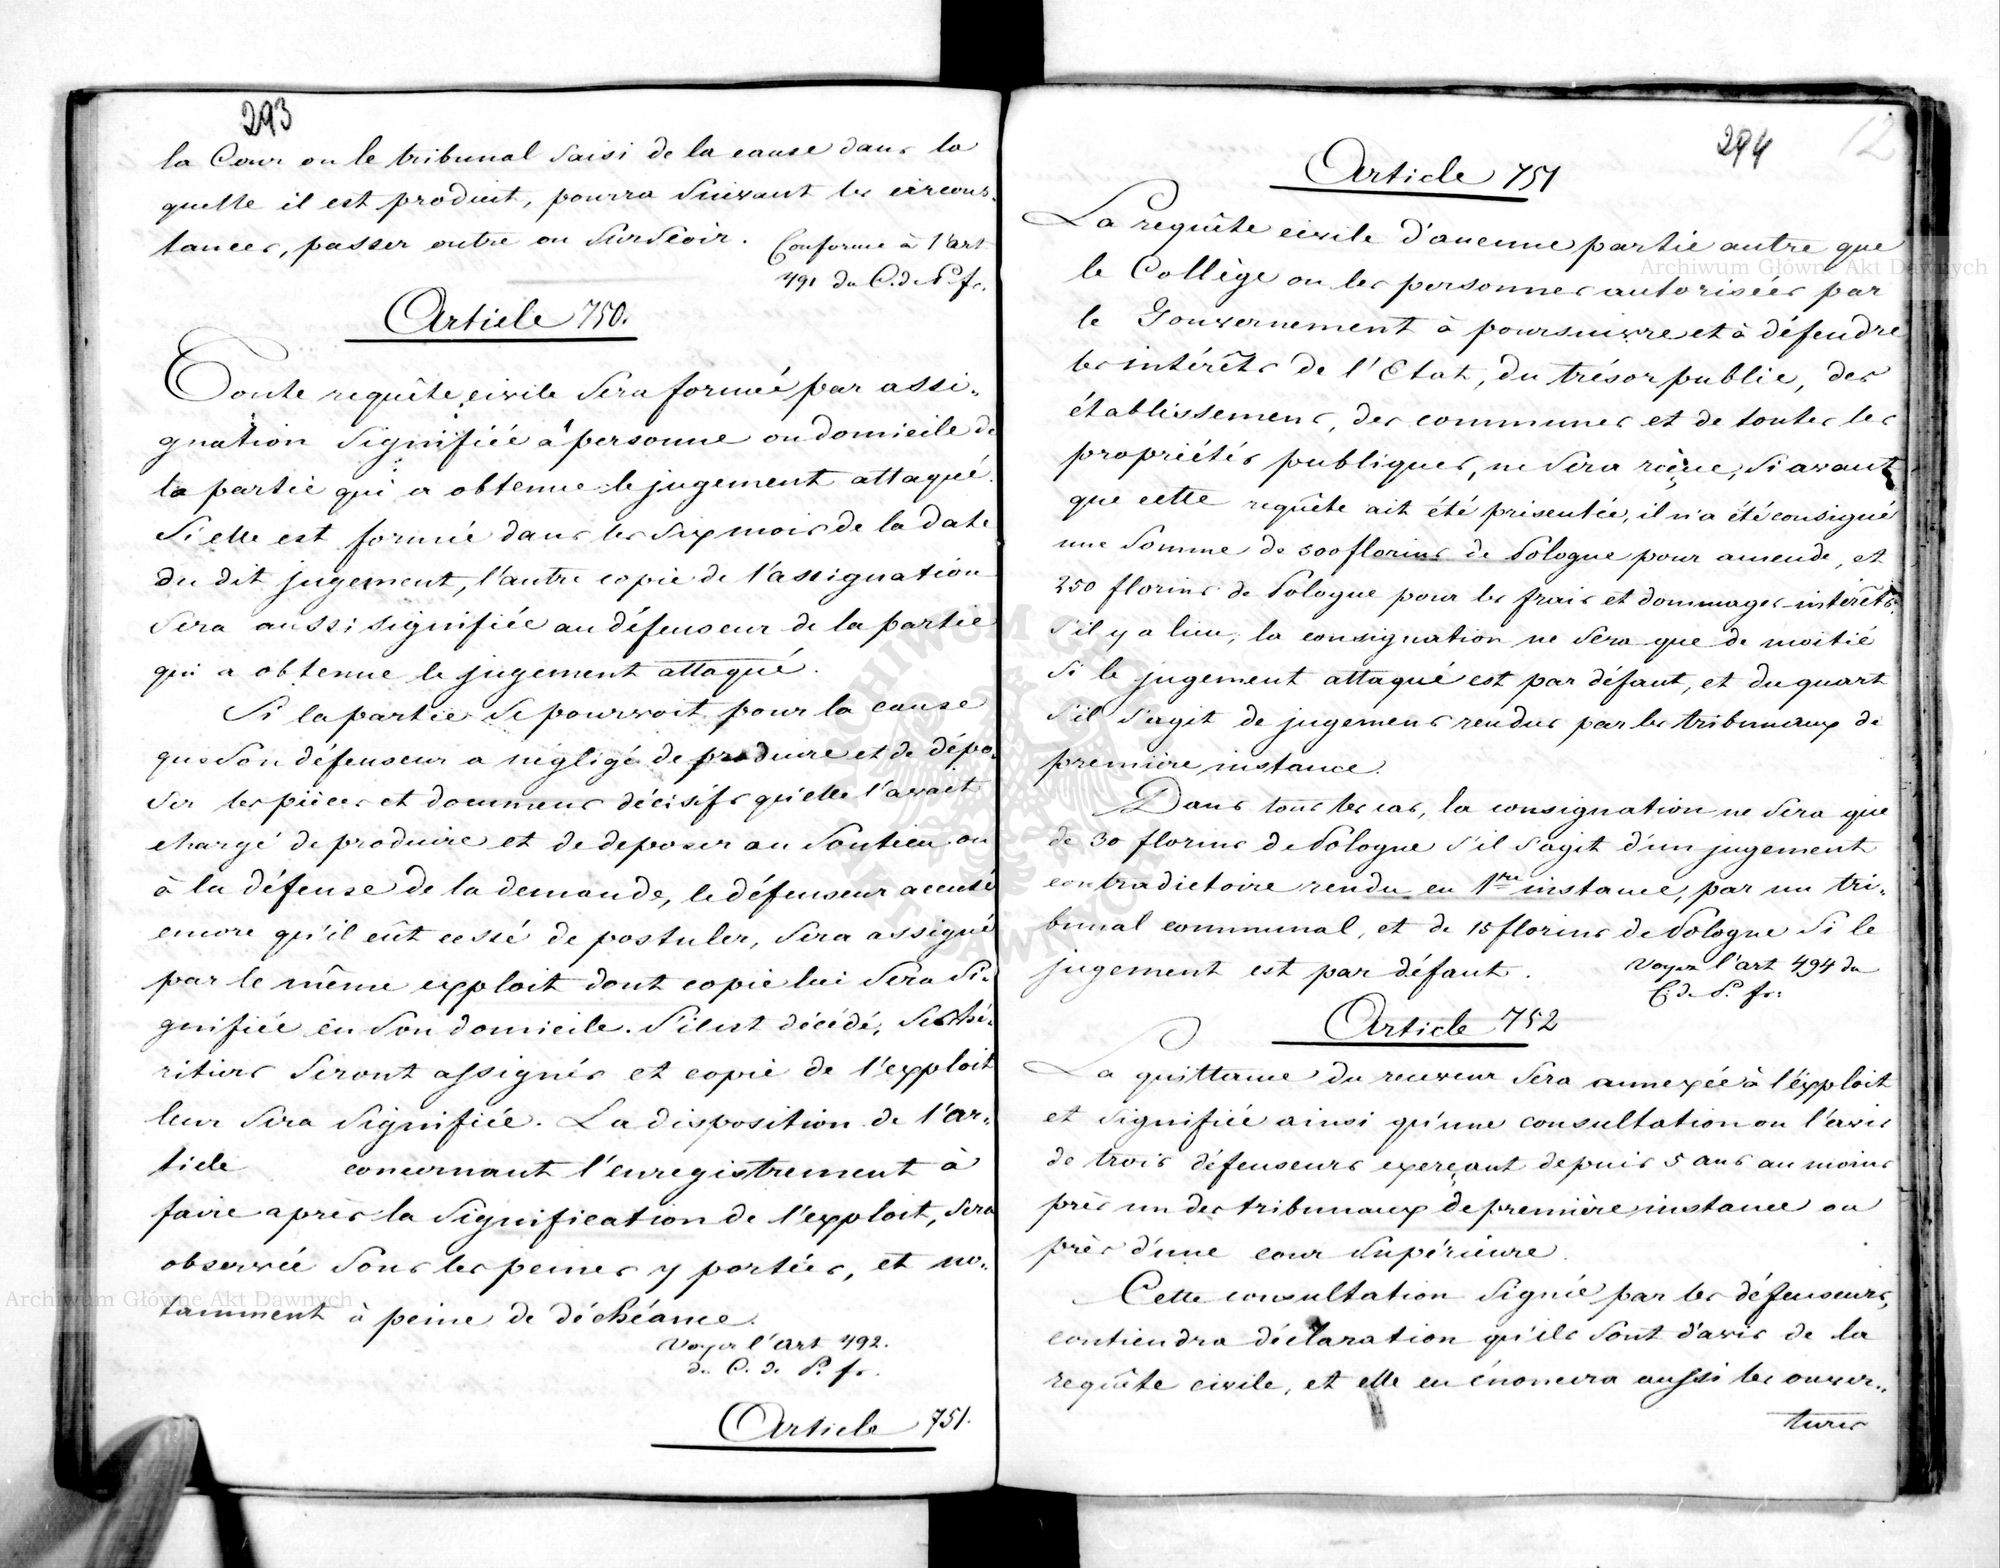 293
la Cour ou le tribunal saisi de la cause dans la
quelle il est produit, pourra suivant les circons-
tances, passer outre ou surseoir. Conforme à l'art
491 du C. de P. fr.
Article 750.
Toute requête civile sera formée par assi-
gnation signifiée à personne ou domicile de
la partie qui a obtenue le jugement attaqué.
Si elle est formée dans les six mois de la date
du dit jugement, l'autre copie de l'assignation
sera aussi signifiée au défenseur de la partie
qui a obtenue le jugement attaqué.
Si la partie se pourvoit pour la cause
que son défenseur a négligé de produire et de dépo-
ser les pièces et documens décisifs qu'elle l'avait
chargé de produire et de deposer au soutien ou
à la défense de la demande, le défenseur accusé
encore qu'il eût cessé de postuler, sera assigné
par le même exploit dont copie lui sera si-
gnifiée en son domicile. S'il est décédé, ses hé-
ritiers seront assignés et copie de l'exploit
leur sera signifiée. La disposition de l'ar-
ticle concernant l'enregistrement à
faire après la signification de l'exploit, sera
observée sous les peines y portées, et no-
tamment à peine de déchéance.
Voyez l'art 492.
du C. de P. fr.
Article 751.
294
12
Article 751
La requête civile d'aucune partie autre que
le Collège ou les personnes autorisées par
le Gouvernement à poursuivre et à défendre
les intérêts de l'Etat, du trésor public, des
établissemens, des communes et de toutes les
propriétés publiques, ne sera reçue, si avant
que cette requête ait été présentée, il n'a été consigné
une somme de 500 florins de Pologne pour amende, et
250 florins de Pologne pour les frais et dommages-intérêts
s'il y a lieu, la consignation ne sera que de moitié
si le jugement attaqué est par défaut, et du quart
s'il s'agit de jugemens rendus par les tribunaux de
première instance.
Dans tous les cas, la consignation ne sera que
de 30 florins de Pologne s'il s'agit d'un jugement
contradictoire rendu en 1re instance, par un tri-
bunal communal, et de 15 florins de Pologne si le
jugement est par défaut. Voyez l'art 494 du
C. de P. fr.
Article 752
La quittance du receveur sera annexée à l'exploit
et signifiée ainsi qu'une consultation ou l'avis
de trois défenseurs exerçant depuis 5 ans au moins
près un des tribunaux de première instance ou
près d'une cour supérieure.
Cette consultation signée par les défenseurs,
contiendra déclaration qu'ils sont d'avis de la
requête civile, et elle en énoncera aussi les ouver-
tures
Archiwum Główne Akt Dawnych
Archiwum Główne Akt Dawnych
ARCHIWUM GŁÓWNE AKT DAWNYCH